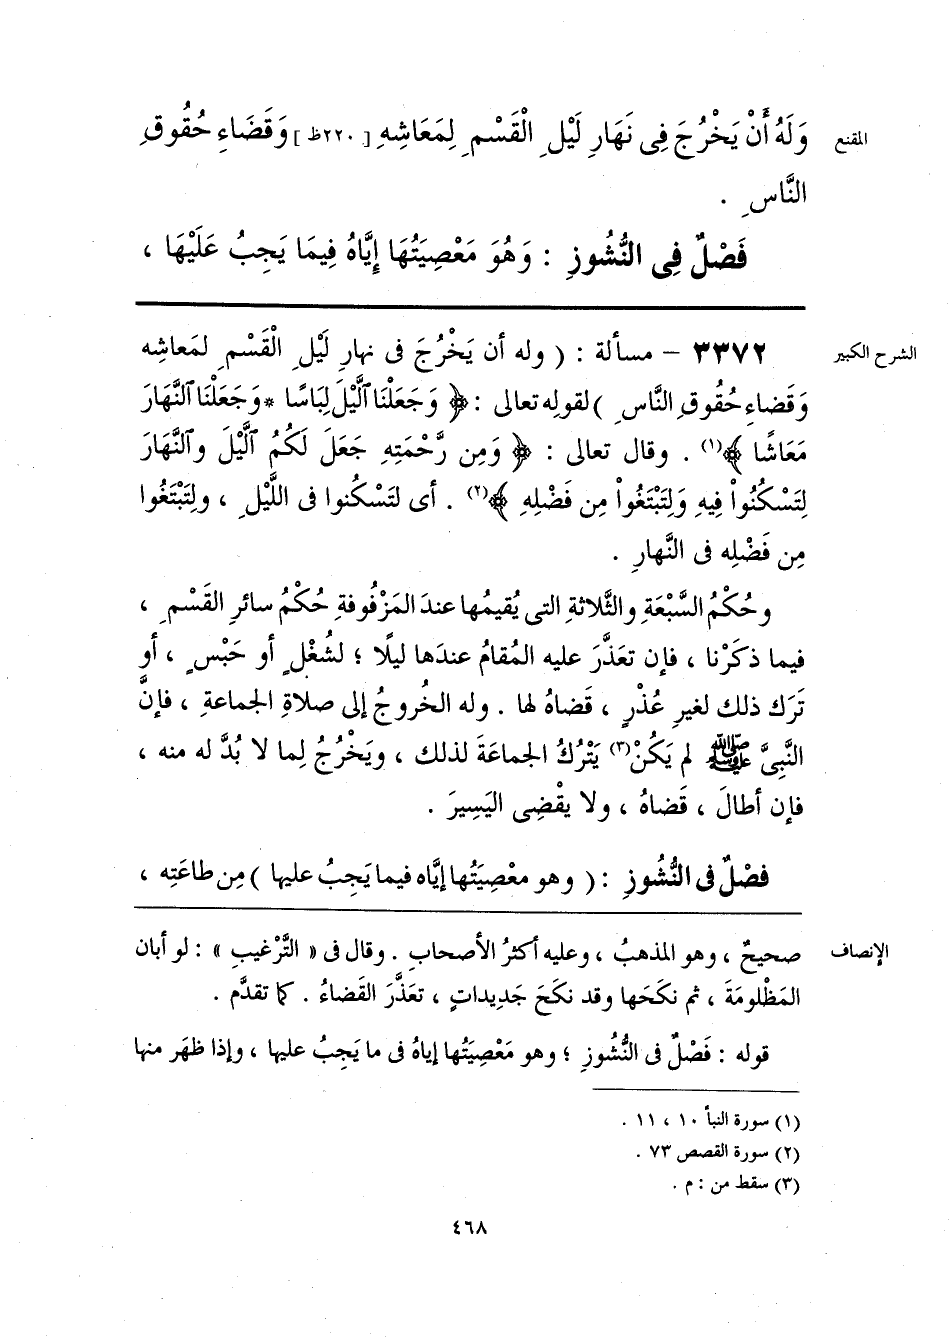 المقنع
وَلَهُ أَنْ يَخْرُجَ فِى نَهَارِ لَيْلِ الْقَسْمِ لِمَعَاشِهِ [ ٢٢٠ظ ] وَقَضَاءِ حُقُوقِ
النَّاسِ .
فَصْلٌ فِى النُّشُوزِ : وَهُوَ مَعْصِيَتُهَا إِيَّاهُ فِيمَا يَجِبُ عَلَيْهَا ،
الشرح الكبير
٣٣٧٢ – مسألة : ( وله أن يَخْرُجَ فى نهارِ لَيْلِ القَسْمِ لمَعاشِه
وَقَضاءِ حُقُوقِ النَّاسِ ) لقولِه تعالى : ﴿ وَجَعَلْنَا ٱلَّيْلَ لِبَاسًا * وَجَعَلْنَا ٱلنَّهَارَ
مَعَاشًا ﴾(١) . وقال تعالى : ﴿ وَمِن رَّحْمَتِهِ جَعَلَ لَكُمُ ٱلَّيْلَ وٱلنَّهَارَ
لِتَسْكُنُواْ فِيهِ وَلِتَبْتَغُواْ مِن فَضْلِهِ ﴾(٢) . أى لتَسْكُنوا فى اللَّيْلِ ، ولِتَبْتَغُوا
مِن فَضْلِه فى النَّهارِ .
وحُكْمُ السَّبْعَةِ والثَّلاثةِ التى يُقيمُها عندَ المَزْفُوفةِ حُكْمُ سائرِ القَسْمِ ،
فيما ذكَرْنا ، فإن تعَذَّرَ عليه المُقامُ عندَها ليلًا ؛ لشُغْلٍ أو حَبْسٍ ، أو
تَرَك ذلك لغيرِ عُذْرٍ ، قَضاهُ لها . وله الخُروجُ إلى صلاةِ الجماعةِ ، فإنَّ
النَّبِىَّ ﷺ لم يَكُنْ(٣) يَتْرُكُ الجماعَةَ لذلك ، ويَخْرُجُ لِما لا بُدَّ له منه ،
فإن أطالَ ، قَضاهُ ، ولا يقْضِى اليَسِيرَ .
فصْلٌ فى النُّشُوزِ : ( وهو معْصِيَتُها إيَّاه فيما يَجِبُ عليها ) مِن طاعَتِه ،
الإنصاف
صحيحٌ ، وهو المذهبُ ، وعليه أكثرُ الأصحابِ . وقال فى « التَّرْغيبِ » : لو أبان
المَظْلومَةَ ، ثم نكَحَها وقد نكَحَ جَديداتٍ ، تعَذَّرَ القَضاءُ . كما تقدَّم .
قوله : فَصْلٌ فى النُّشُوزِ ؛ وهو مَعْصِيَتُها إياهُ فى ما يَجِبُ عليها ، وإذا ظهَر منها
(١) سورة النبأ ١٠ ، ١١ .
(٢) سورة القصص ٧٣ .
(٣) سقط من : م .
٤٦٨